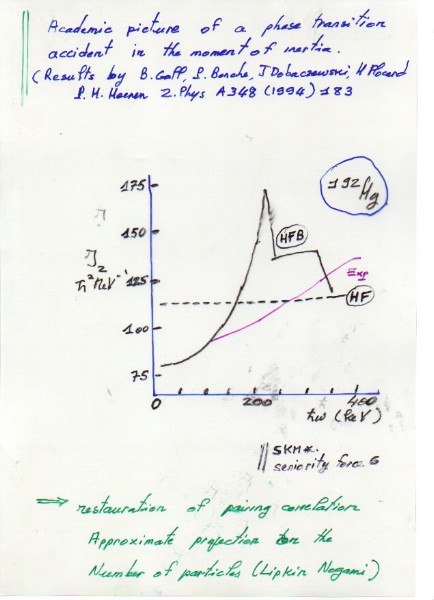 Academic picture of a phase transition
accident in the moment of inertia.
(Results by B. Gall, P. Bonche, J Dobaczewski, H Flocard
P. H. Heenen Z. Phys A348 (1994) 183
192 Hg
J2
ħ² MeV⁻¹
175
150
125
100
75
HFB
Exp
HF
0
200
400
ħω (keV)
SKM*
seniority force G
⇒ restauration of pairing correlation
Approximate projection on the
Number of particles (Lipkin Nogami)